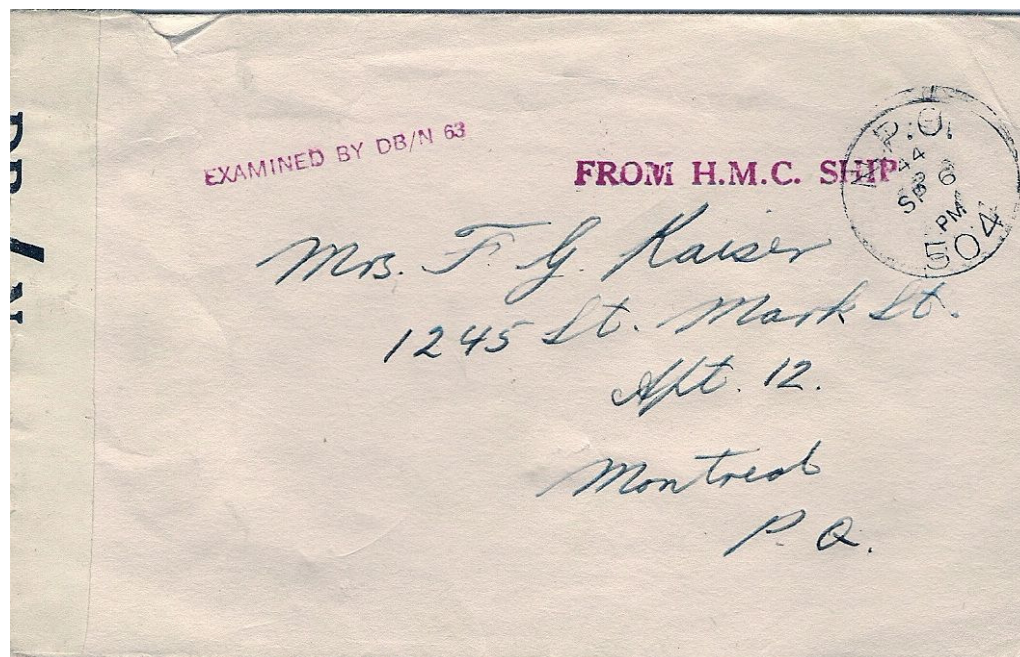 DB/N
EXAMINED BY DB/N 63
FROM H.M.C. SHIP
N.P.O.
44
SP 6
PM
504
Mrs. F. G. Kaiser
1245 St. Mark St.
Apt. 12.
Montreal
P. Q.